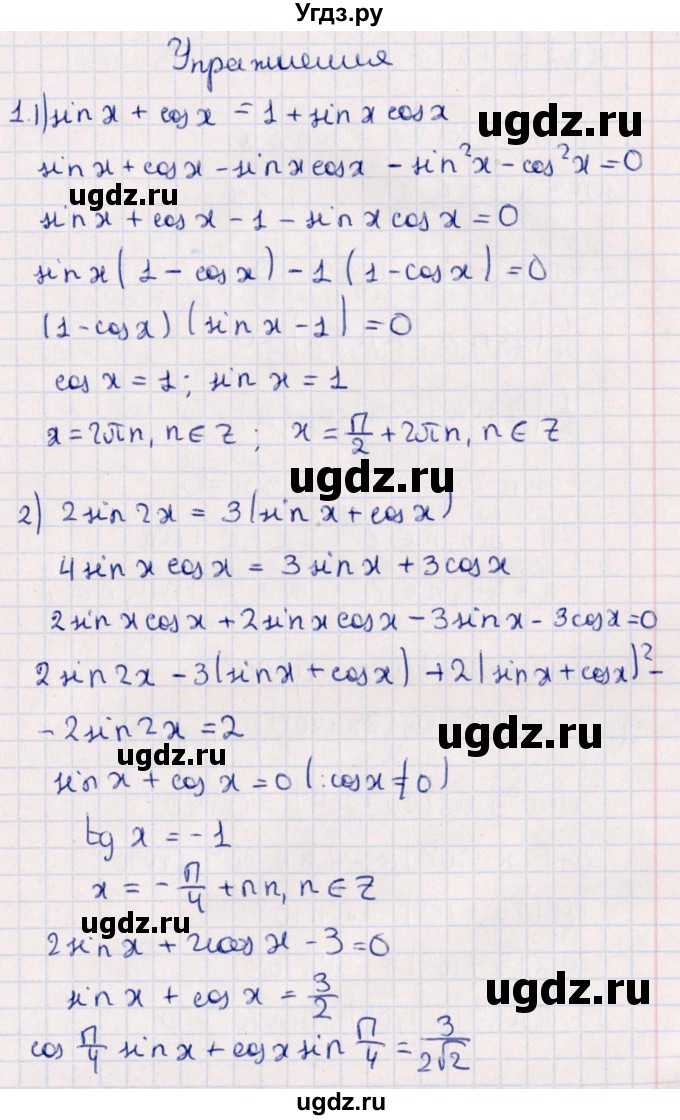 Угдз.ру
Упражнения
1.1) sin x + cos x = 1 + sin x cos x
ugdz.ru
sin x + cos x - sin x cos x - sin²x - cos²x = 0
ugdz.ru
sin x + cos x - 1 - sin x cos x = 0
sin x (1 - cos x) - 1 (1 - cos x) = 0
(1 - cos x) (sin x - 1) = 0
cos x = 1; sin x = 1
x = 2πn, n ∈ Z; x = π/2 + 2πn, n ∈ Z
ugdz.ru
2) 2 sin 2x = 3 (sin x + cos x)
4 sin x cos x = 3 sin x + 3 cos x
2 sin x cos x + 2 sin x cos x - 3 sin x - 3 cos x = 0
2 sin 2x - 3 (sin x + cos x) + 2 (sin x + cos x)² -
- 2 sin 2x = 2
ugdz.ru
ugdz.ru
sin x + cos x = 0 (: cos x ≠ 0)
tg x = -1
x = - π/4 + πn, n ∈ Z
ugdz.ru
2 sin x + 2 cos x - 3 = 0
ugdz.ru
sin x + cos x = 3/2
cos π/4 sin x + cos x sin π/4 = 3/2√2
ugdz.ru